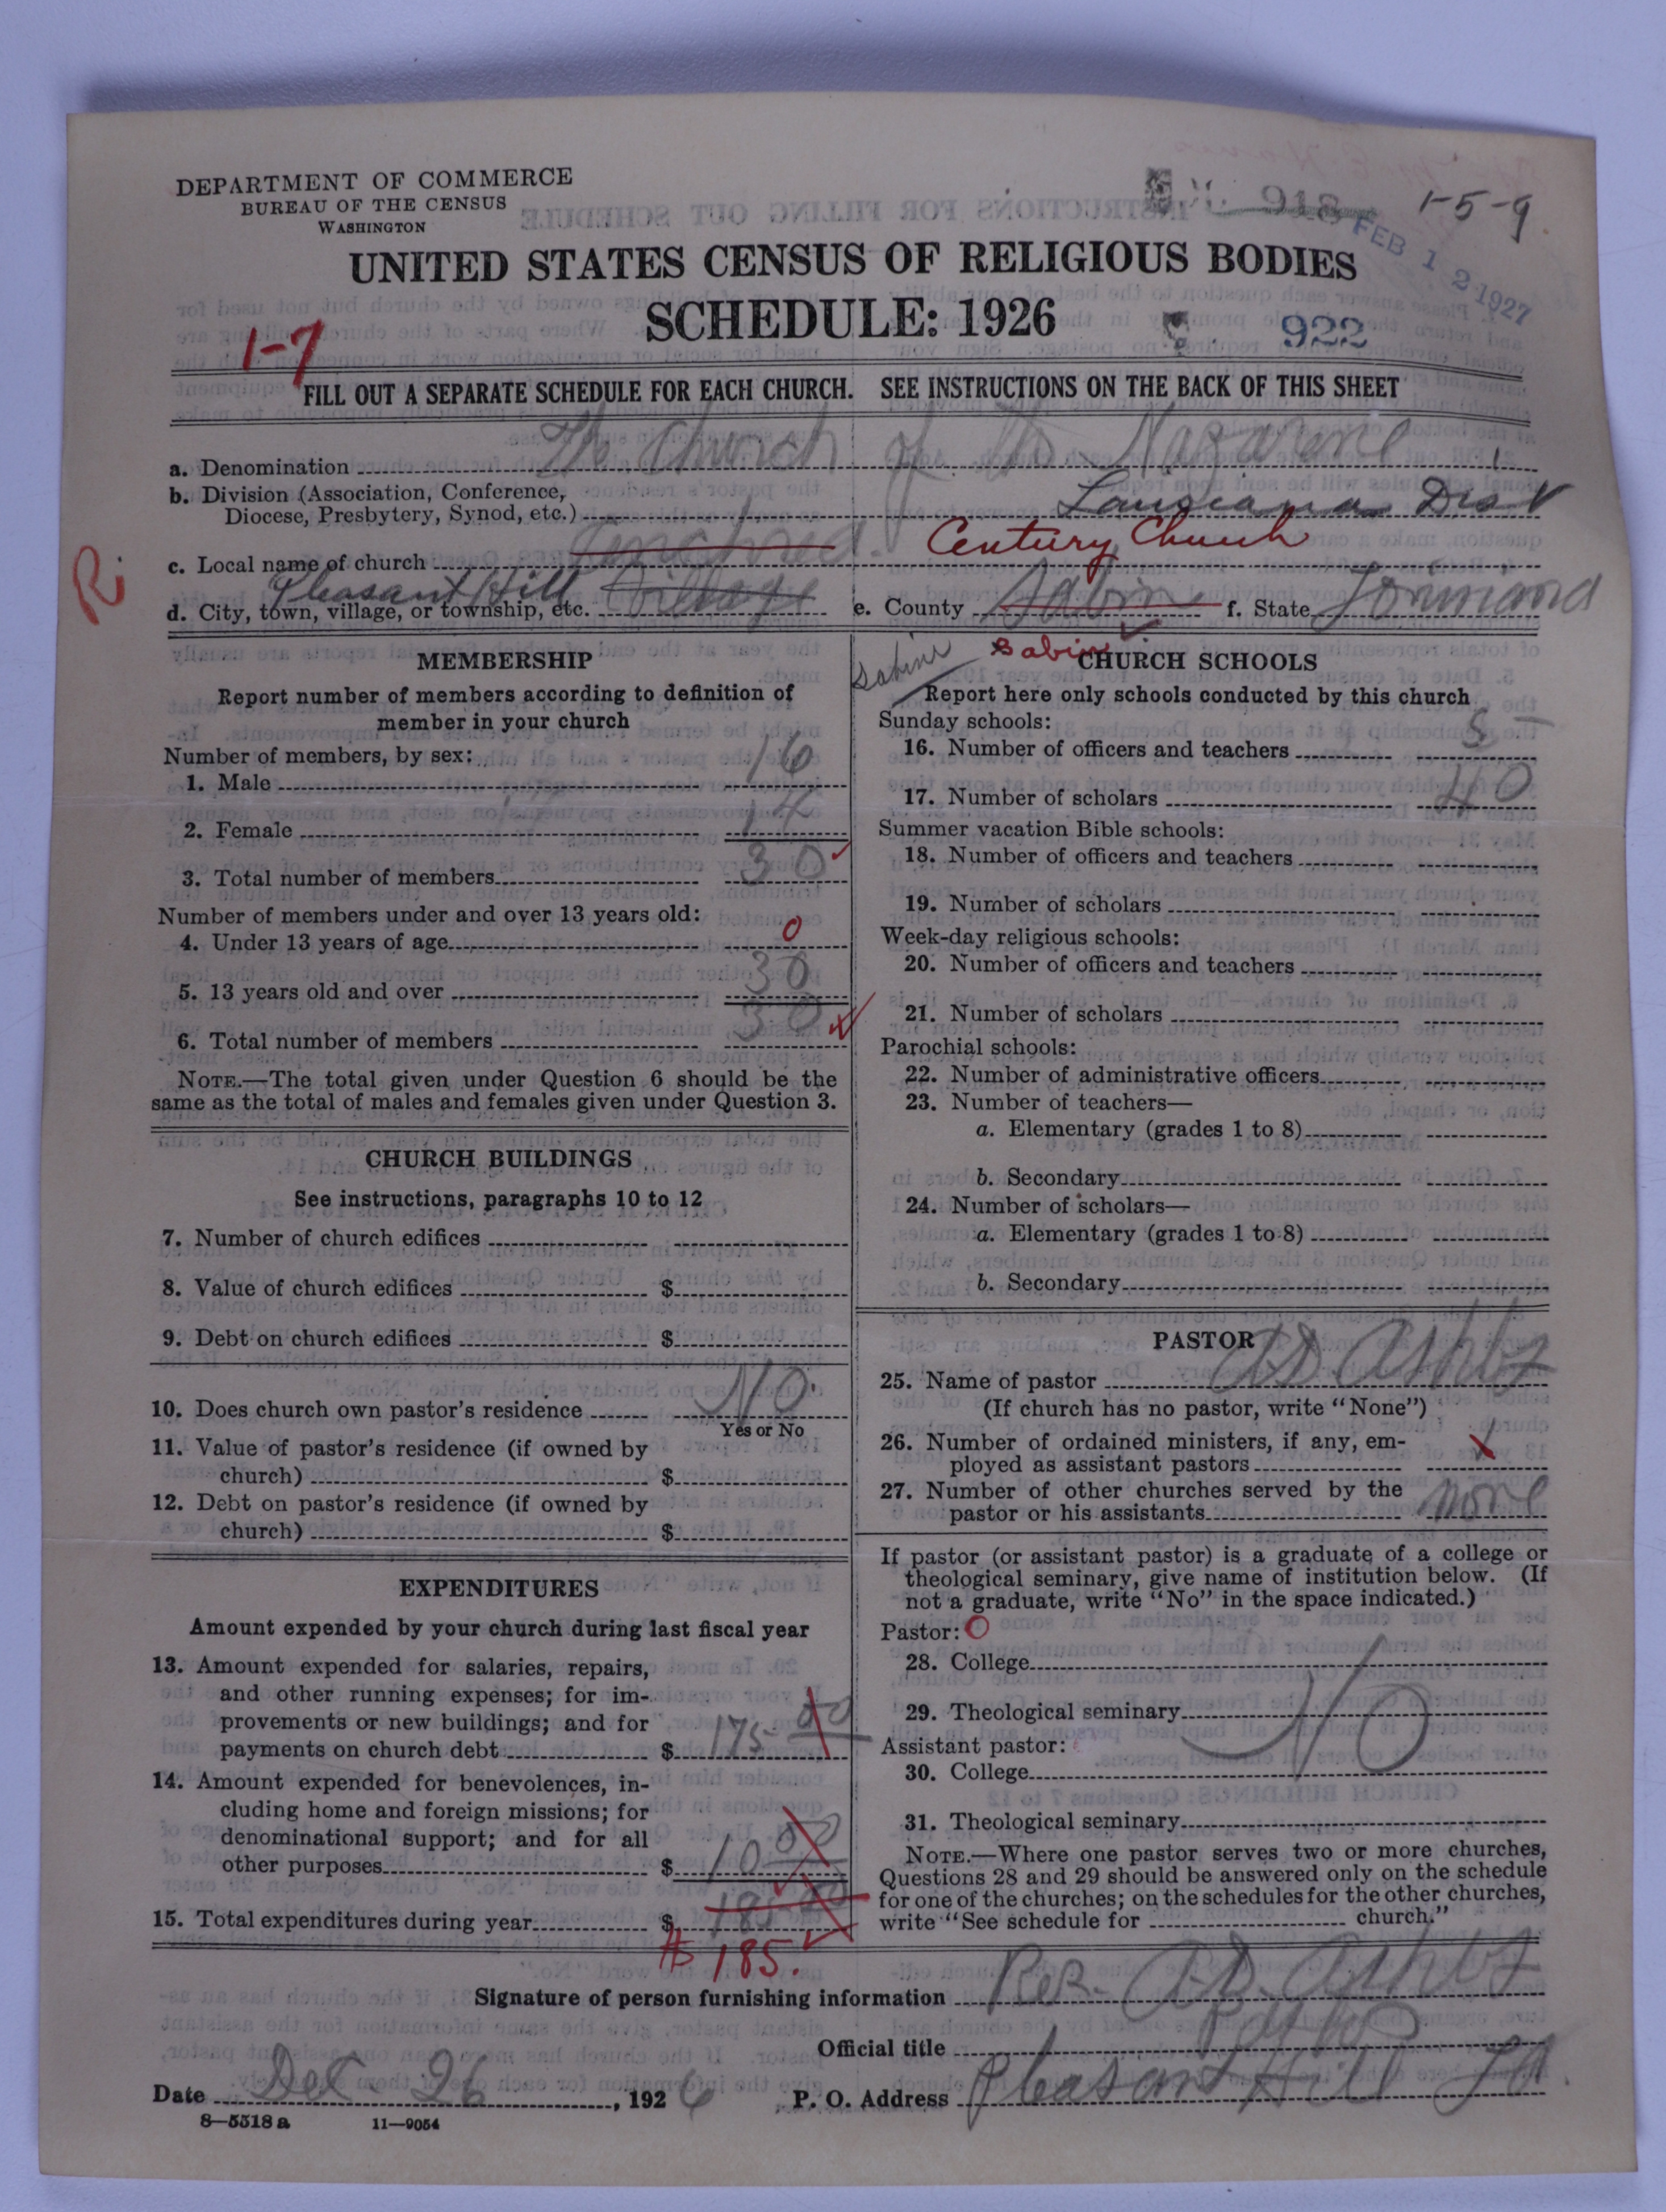 DEPARTMENT OF COMMERCE
BUREAU OF THE CENSUS
WASHINGTON
918
1-5-9
FEB 12 1927
UNITED STATES CENSUS OF RELIGIOUS BODIES
SCHEDULE: 1926
1-7
922
FILL OUT A SEPARATE SCHEDULE FOR EACH CHURCH. SEE INSTRUCTIONS ON THE BACK OF THIS SHEET
a. Denomination The Church of the Nazarene
b. Division (Association, Conference,
Diocese, Presbytery, Synod, etc.) Lousiana Dist
c. Local name of church Century Church
d. City, town, village, or township, etc. Pleasant Hill Village e. County Sabine f. State
Sabine Sabine
MEMBERSHIP
Report number of members according to definition of
member in your church
Number of members, by sex:
1. Male 16
2. Female 14
3. Total number of members 30
Number of members under and over 13 years old:
4. Under 13 years of age 0
5. 13 years old and over 30
6. Total number of members 30
NOTE.—The total given under Question 6 should be the
same as the total of males and females given under Question 3.
CHURCH BUILDINGS
See instructions, paragraphs 10 to 12
7. Number of church edifices
8. Value of church edifices $
9. Debt on church edifices $
10. Does church own pastor's residence No.
Yes or No
11. Value of pastor's residence (if owned by
church) $
12. Debt on pastor's residence (if owned by
church) $
EXPENDITURES
Amount expended by your church during last fiscal year
13. Amount expended for salaries, repairs,
and other running expenses; for im-
provements or new buildings; and for
payments on church debt $ 175 00
14. Amount expended for benevolences, in-
cluding home and foreign missions; for
denominational support; and for all
other purposes $ 10 00
15. Total expenditures during year $ 185 00
$ 185.
CHURCH SCHOOLS
Report here only schools conducted by this church
Sunday schools:
16. Number of officers and teachers 5
17. Number of scholars 40
Summer vacation Bible schools:
18. Number of officers and teachers
19. Number of scholars
Week-day religious schools:
20. Number of officers and teachers
21. Number of scholars
Parochial schools:
22. Number of administrative officers
23. Number of teachers—
a. Elementary (grades 1 to 8)
b. Secondary
24. Number of scholars—
a. Elementary (grades 1 to 8)
b. Secondary
PASTOR
25. Name of pastor A D Ashby
(If church has no pastor, write "None")
26. Number of ordained ministers, if any, em-
ployed as assistant pastors
27. Number of other churches served by the
pastor or his assistants none
If pastor (or assistant pastor) is a graduate of a college or
theological seminary, give name of institution below. (If
not a graduate, write "No" in the space indicated.)
Pastor: O
28. College
29. Theological seminary No
Assistant pastor:
30. College
31. Theological seminary
NOTE.—Where one pastor serves two or more churches,
Questions 28 and 29 should be answered only on the schedule
for one of the churches; on the schedules for the other churches,
write "See schedule for church."
Signature of person furnishing information Rev. A.D. Ashby
Official title
Date Dec. 26, 1926 P. O. Address Pleasant Hill La.
8—5518 a 11—9054